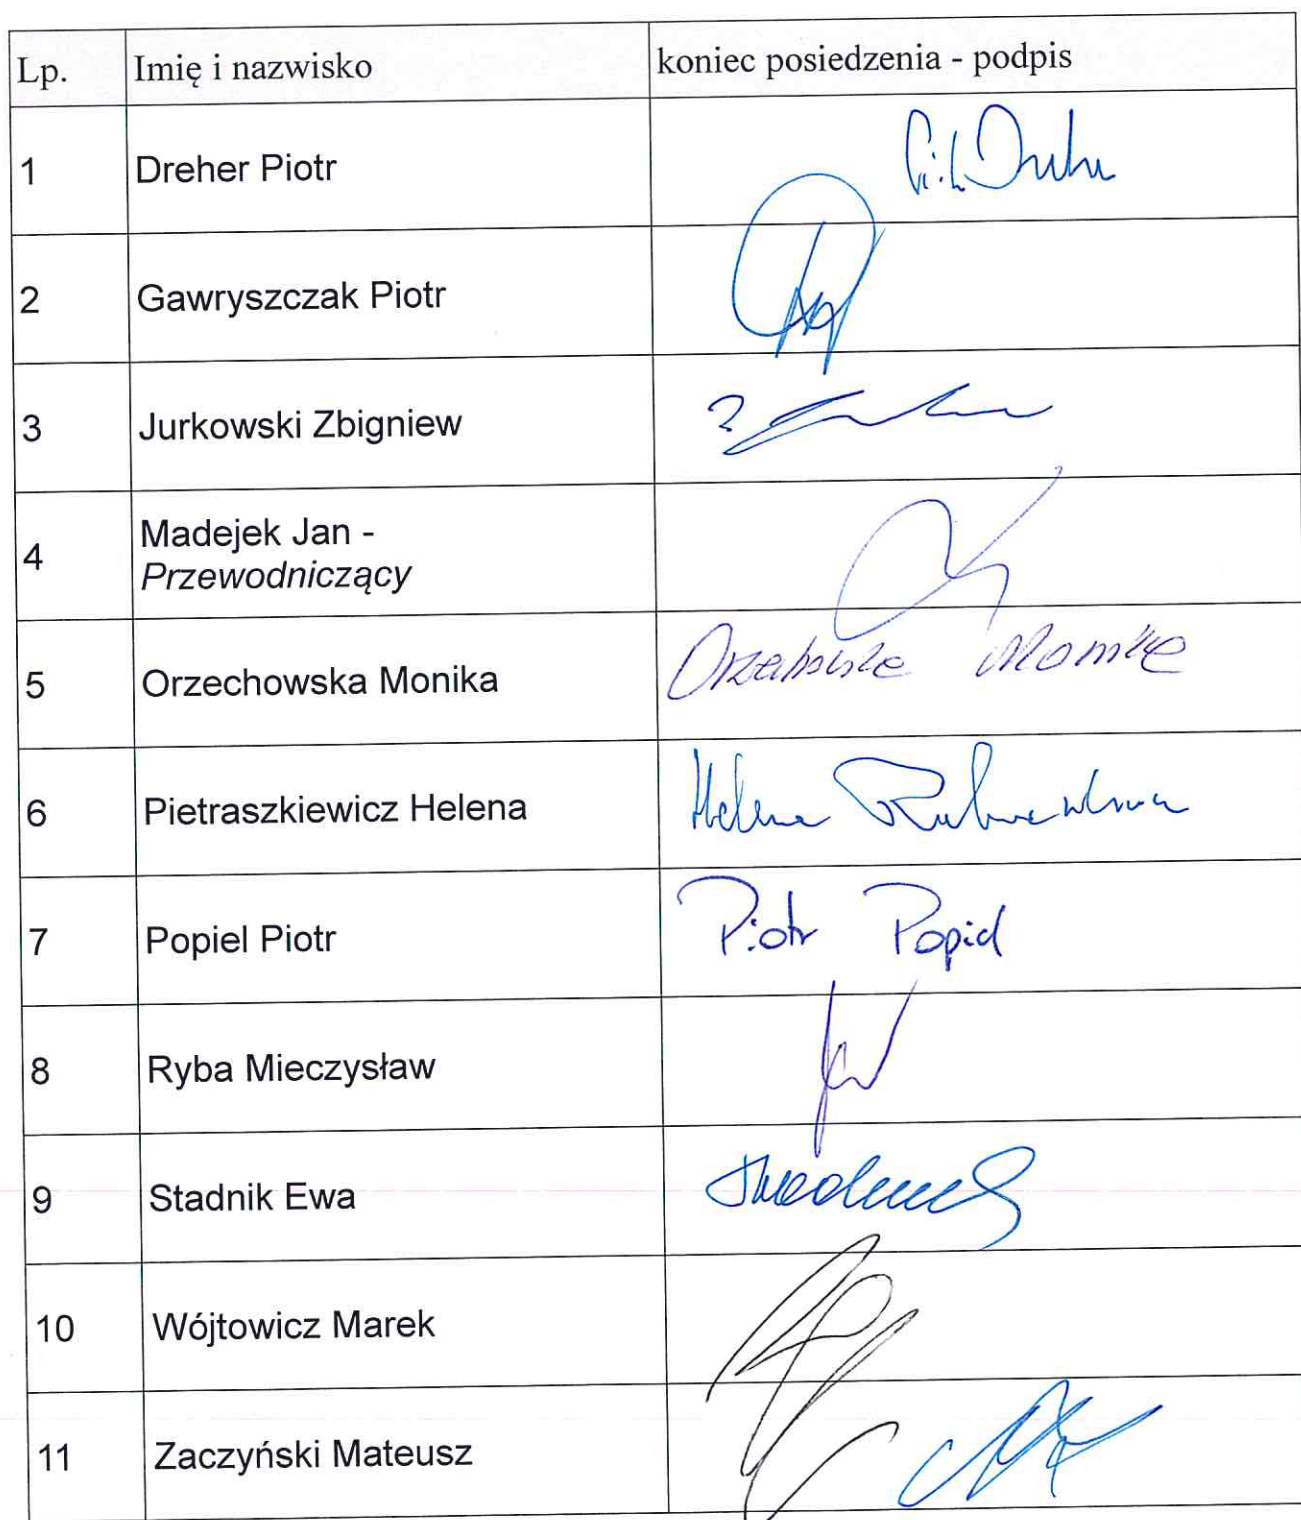 Lp. Imię i nazwisko koniec posiedzenia - podpis
1 Dreher Piotr
2 Gawryszczak Piotr
3 Jurkowski Zbigniew
4 Madejek Jan -
Przewodniczący
5 Orzechowska Monika
6 Pietraszkiewicz Helena Helena
7 Popiel Piotr Piotr Popiel
8 Ryba Mieczysław
9 Stadnik Ewa
10 Wójtowicz Marek
11 Zaczyński Mateusz